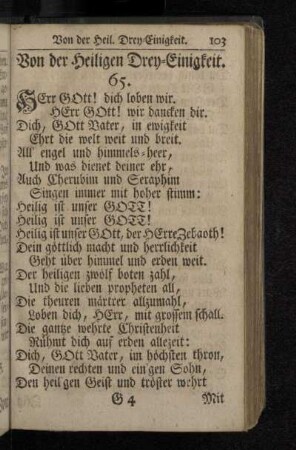 Von der Heil. Drey-Einigkeit. 103
Von der Heiligen Drey-Einigkeit.
65.
HErr GOtt! dich loben wir.
HErr GOtt! wir dancken dir.
Dich, GOtt Vater, in ewigkeit
Ehrt die welt weit und breit.
All' engel und himmels-heer,
Und was dienet deiner ehr,
Auch Cherubim und Seraphim
Singen immer mit hoher stimm:
Heilig ist unser GOTT!
Heilig ist unser GOTT!
Heilig ist unser GOtt, der HErre Zebaoth!
Dein göttlich macht und herrlichkeit
Geht über himmel und erden weit.
Der heiligen zwölf boten zahl,
Und die lieben propheten all,
Die theuren märtrer allzumahl,
Loben dich, HErr, mit grossem schall.
Die gantze wehrte Christenheit
Rühmt dich auf erden allezeit:
Dich, GOtt Vater, im höchsten thron,
Deinen rechten und ein'gen Sohn,
Den heil'gen Geist und tröster wehrt
G 4 Mit